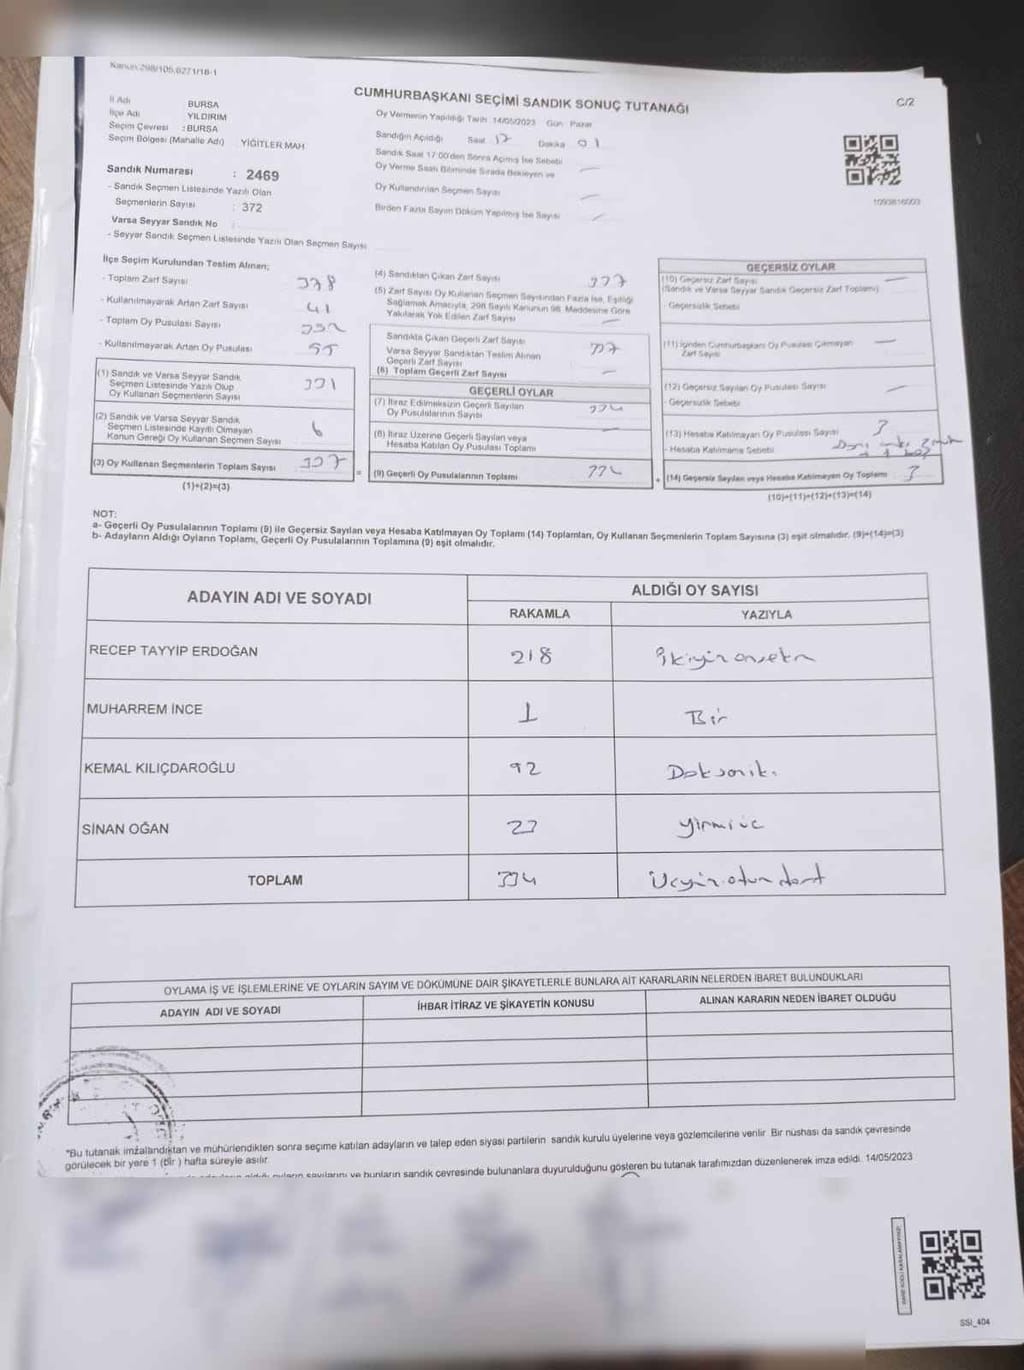 Kanun:298/105,6271/18-1
CUMHURBAŞKANI SEÇİMİ SANDIK SONUÇ TUTANAĞI
C/2
İl Adı BURSA
İlçe Adı YILDIRIM
Seçim Çevresi : BURSA
Seçim Bölgesi (Mahalle Adı) YİĞİTLER MAH
Oy Vermenin Yapıldığı Tarih 14/05/2023 Gün Pazar
Sandığın Açıldığı Saat 17 Dakika 01
Sandık Saat 17:00'den Sonra Açılmış İse Sebebi
Oy Verme Saati Bitiminde Sırada Bekleyen ve
Oy Kullandırılan Seçmen Sayısı
Birden Fazla Sayım Döküm Yapılmış İse Sayısı
1093816003
Sandık Numarası : 2469
- Sandık Seçmen Listesinde Yazılı Olan
Seçmenlerin Sayısı : 372
Varsa Seyyar Sandık No
- Seyyar Sandık Seçmen Listesinde Yazılı Olan Seçmen Sayısı
İlçe Seçim Kurulundan Teslim Alınan;
- Toplam Zarf Sayısı 378
- Kullanılmayarak Artan Zarf Sayısı 41
- Toplam Oy Pusulası Sayısı
- Kullanılmayarak Artan Oy Pusulası 55
(1) Sandık ve Varsa Seyyar Sandık
Seçmen Listesinde Yazılı Olup
Oy Kullanan Seçmenlerin Sayısı 331
(2) Sandık ve Varsa Seyyar Sandık
Seçmen Listesinde Kayıtlı Olmayan
Kanun Gereği Oy Kullanan Seçmen Sayısı 6
(3) Oy Kullanan Seçmenlerin Toplam Sayısı 337
(1)+(2)=(3)
(4) Sandıktan Çıkan Zarf Sayısı 337
(5) Zarf Sayısı Oy Kullanan Seçmen Sayısından Fazla İse, Eşitliği
Sağlamak Amacıyla, 298 Sayılı Kanunun 98. Maddesine Göre
Yakılarak Yok Edilen Zarf Sayısı
Sandıkta Çıkan Geçerli Zarf Sayısı 337
Varsa Seyyar Sandıktan Teslim Alınan
Geçerli Zarf Sayısı
(6) Toplam Geçerli Zarf Sayısı
GEÇERLİ OYLAR
(7) İtiraz Edilmeksizin Geçerli Sayılan
Oy Pusulalarının Sayısı 334
(8) İtiraz Üzerine Geçerli Sayılan veya
Hesaba Katılan Oy Pusulası Toplamı
(9) Geçerli Oy Pusulalarının Toplamı 334
GEÇERSİZ OYLAR
(10) Geçersiz Zarf Sayısı
(Sandık ve Varsa Seyyar Sandık Geçersiz Zarf Toplamı)
- Geçersizlik Sebebi
(11) İçinden Cumhurbaşkanı Oy Pusulası Çıkmayan
Zarf Sayısı
(12) Geçersiz Sayılan Oy Pusulası Sayısı
- Geçersizlik Sebebi
(13) Hesaba Katılmayan Oy Pusulası Sayısı 3
- Hesaba Katılmama Sebebi
(14) Geçersiz Sayılan veya Hesaba Katılmayan Oy Toplamı 3
(10)+(11)+(12)+(13)=(14)
NOT:
a- Geçerli Oy Pusulalarının Toplamı (9) ile Geçersiz Sayılan veya Hesaba Katılmayan Oy Toplamı (14) Toplamları, Oy Kullanan Seçmenlerin Toplam Sayısına (3) eşit olmalıdır. (9)+(14)=(3)
b- Adayların Aldığı Oyların Toplamı, Geçerli Oy Pusulalarının Toplamına (9) eşit olmalıdır.
ADAYIN ADI VE SOYADI ALDIĞI OY SAYISI
RAKAMLA YAZIYLA
RECEP TAYYİP ERDOĞAN 218 ikiyüzonsekiz
MUHARREM İNCE 1 Bir
KEMAL KILIÇDAROĞLU 92 Doksaniki
SİNAN OĞAN 23 yirmiüç
TOPLAM 334 Üçyüzotuzdört
OYLAMA İŞ VE İŞLEMLERİNE VE OYLARIN SAYIM VE DÖKÜMÜNE DAİR ŞİKAYETLERLE BUNLARA AİT KARARLARIN NELERDEN İBARET BULUNDUKLARI
ADAYIN ADI VE SOYADI İHBAR İTİRAZ VE ŞİKAYETİN KONUSU ALINAN KARARIN NEDEN İBARET OLDUĞU
"Bu tutanak imzalandıktan ve mühürlendikten sonra seçime katılan adayların ve talep eden siyasi partilerin sandık kurulu üyelerine veya gözlemcilerine verilir. Bir nüshası da sandık çevresinde
görülecek bir yere 1 (bir ) hafta süreyle asılır.
sayılarını ve bunların sandık çevresinde bulunanlara duyurulduğunu gösteren bu tutanak tarafımızdan düzenlenerek imza edildi. 14/05/2023
SSI_404